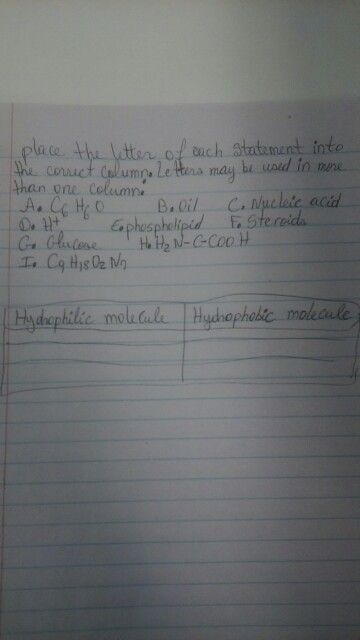 place the letter of each statement into
the correct column. Letters may be used in more
than one column.
A. C6 H6 O B. Oil C. Nucleic acid
D. H+ E. phospholipid F. Steroids
G. Glucose H. H2 N-C-COO H
I. C9 H18 O2 N2
Hydrophilic molecule Hydrophobic molecule